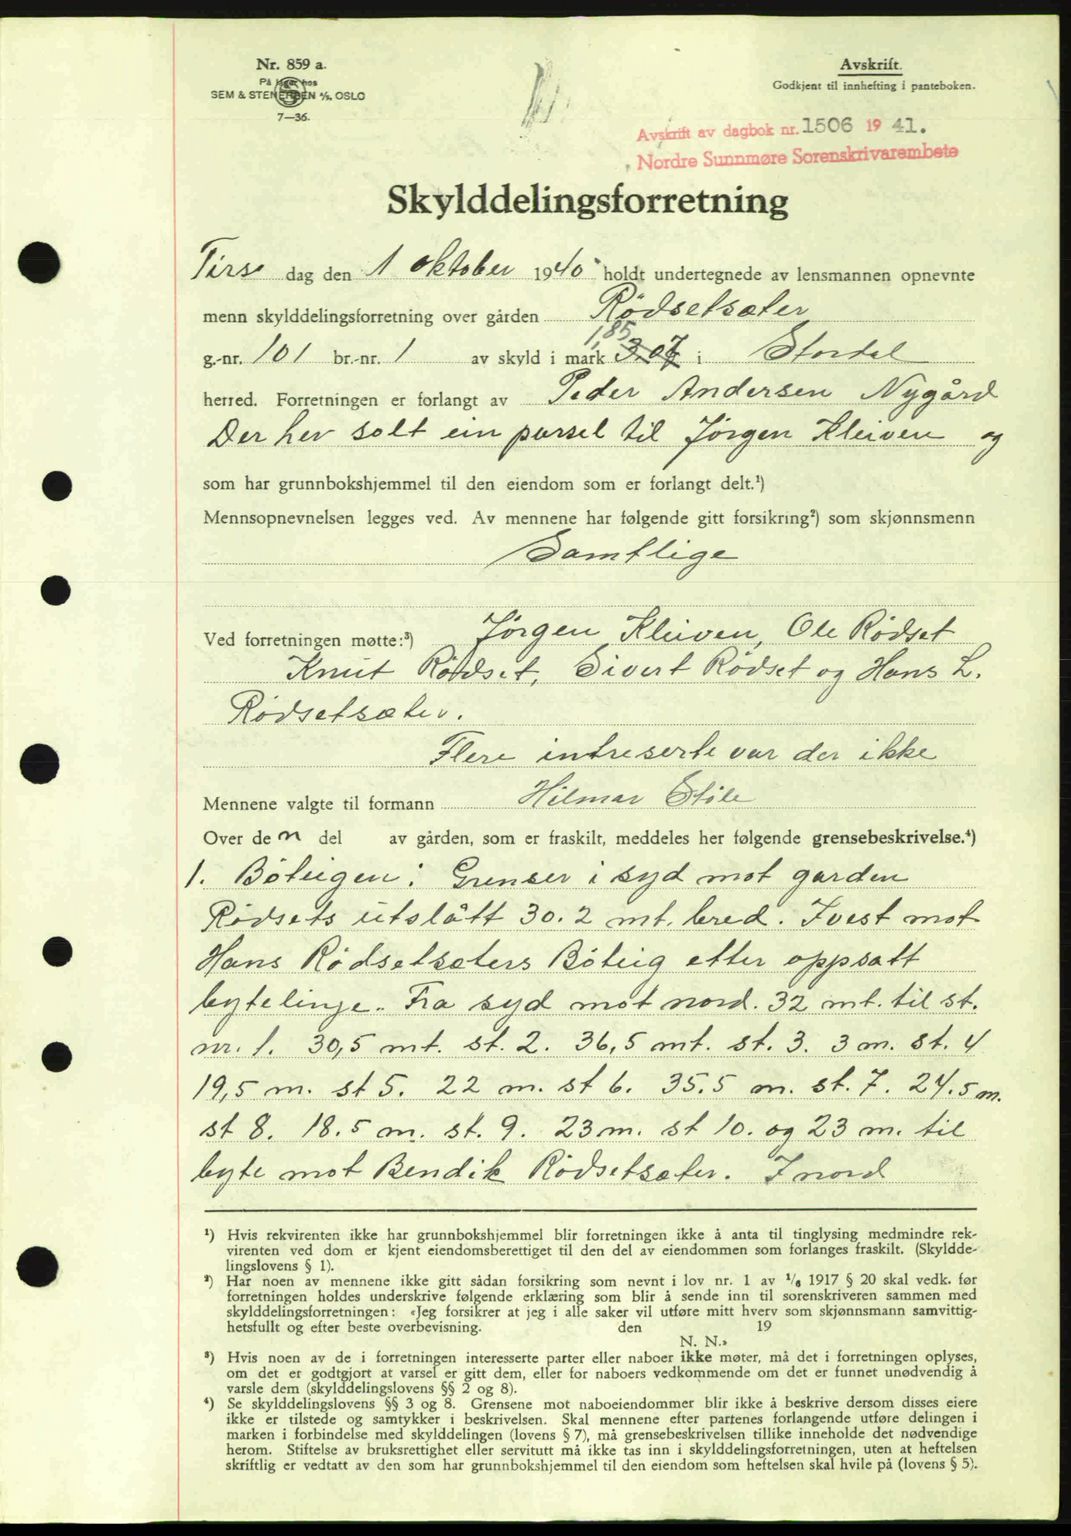 Nr. 859 a.
På lager hos
SEM & STENERSEN A/S. OSLO
7—36.
Avskrift.
Godkjent til innhefting i panteboken.
Avskrift av dagbok nr. 1506 19 41.
Nordre Sunnmøre Sorenskrivarembete
Skylddelingsforretning
Tirsdag den 1 oktober 1940 holdt undertegnede av lensmannen opnevnte
menn skylddelingsforretning over gården Rödsetsæter
1,85
g.-nr. 101 br.-nr. 1 av skyld i mark 3.07 i Stordal
herred. Forretningen er forlangt av Peder Andersen Nygård
Der hev selt ein parsel til Jörgen Kleiven og
som har grunnbokshjemmel til den eiendom som er forlangt delt.¹)
Mennsopnevnelsen legges ved. Av mennene har følgende gitt forsikring²) som skjønnsmenn
Samtlige
Ved forretningen møtte:³) Jörgen Kleiven, Ole Rödset
Knut Rödset, Sivert Rödset og Hans L.
Rödsetsæter.
Flere intreserte var der ikke
Mennene valgte til formann Hilmar Støle
Over den del av gården, som er fraskilt, meddeles her følgende grensebeskrivelse.⁴)
1. Böteigen: Grenser i syd mot garden
Rödsets utslått 30.2 mt. bred. I vest mot
Hans Rödsetsæters Böteig etter oppsatt
bytelinje. Fra syd mot nord. 32 mt. til st.
nr. 1. 30,5 mt. st. 2. 36,5 mt. st. 3. 3 m. st. 4
19,5 m. st 5. 22 m. st 6. 35.5 m. st. 7. 24.5 m.
st 8. 18.5 m. st. 9. 23 m. st 10. og 23 m. til
byte mot Bendik Rödsetsæter. I nord
¹) Hvis rekvirenten ikke har grunnbokshjemmel blir forretningen ikke å anta til tinglysing medmindre rek-
virenten ved dom er kjent eiendomsberettiget til den del av eiendommen som forlanges fraskilt. (Skyldde-
lingslovens § 1).
²) Har noen av mennene ikke gitt sådan forsikring som nevnt i lov nr. 1 av 1/6 1917 § 20 skal vedk. før
forretningen holdes underskrive følgende erklæring som blir å sende inn til sorenskriveren sammen med
skylddelingsforretningen: «Jeg forsikrer at jeg i alle saker vil utføre mitt hverv som skjønnsmann samvittig-
hetsfullt og efter beste overbevisning. den 19
N. N.»
³) Hvis noen av de i forretningen interesserte parter eller naboer ikke møter, må det i forretningen oplyses,
om det er godtgjort at varsel er gitt dem, eller for naboers vedkommende om det er funnet unødvendig å
varsle dem (skylddelingslovens §§ 2 og 8).
⁴) Se skylddelingslovens §§ 3 og 8. Grensene mot naboeiendommer blir ikke å beskrive dersom disses eiere
ikke er tilstede og samtykker i beskrivelsen. Skal mennene efter partenes forlangende utføre delingen i
marken i forbindelse med skylddelingen (lovens § 7), må grensebeskrivelsen tillike inneholde det nødvendige
herom. Stiftelse av bruksrettighet eller servitutt må ikke tas inn i skylddelingsforretningen, uten at heftelsen
skriftlig er vedtatt av den som har grunnbokshjemmel til den eiendom som heftelsen skal hvile på (lovens § 5).